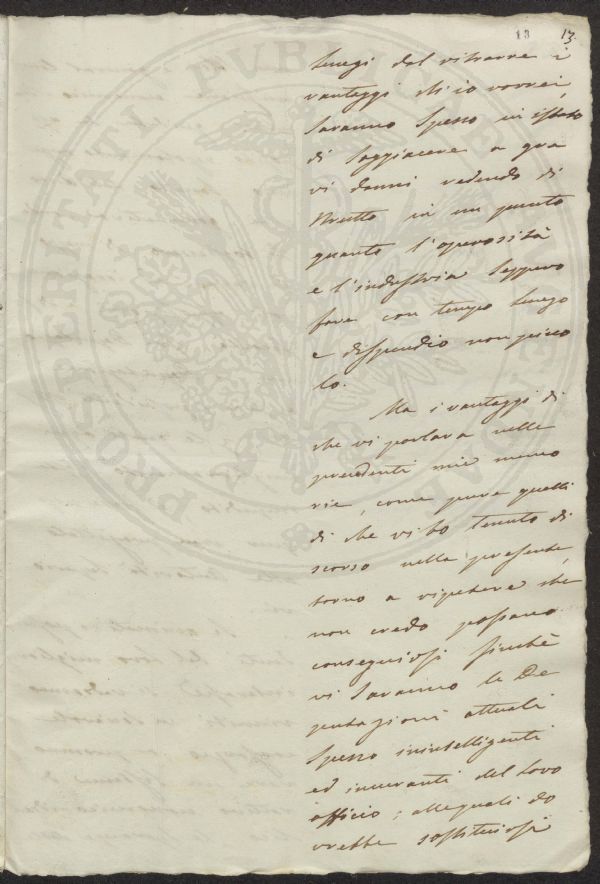 13 13.
lungi dal ritrarre i
vantaggi ch'io vorrei,
saranno spesso in istato
di soggiacere a gra
vi danni vedendo di
strutto in un punto
quanto l'operosità
e l'industria seppero
fare con tempo lungo
e dispendio non picco
lo.
Ma i vantaggi di
che vi parlava nelle
precedenti mie memo
rie, come pure quelli
di che vi ho tenuto di
scorso nella presente,
torno a ripetere che
non credo possano
conseguirsi finchè
vi saranno le De
putazioni attuali
spesso inintelligenti
ed incuranti del loro
officio; alle quali do
vrebbe sostituirsi
PROSPERITATI PVBLICAE AVGENDAE